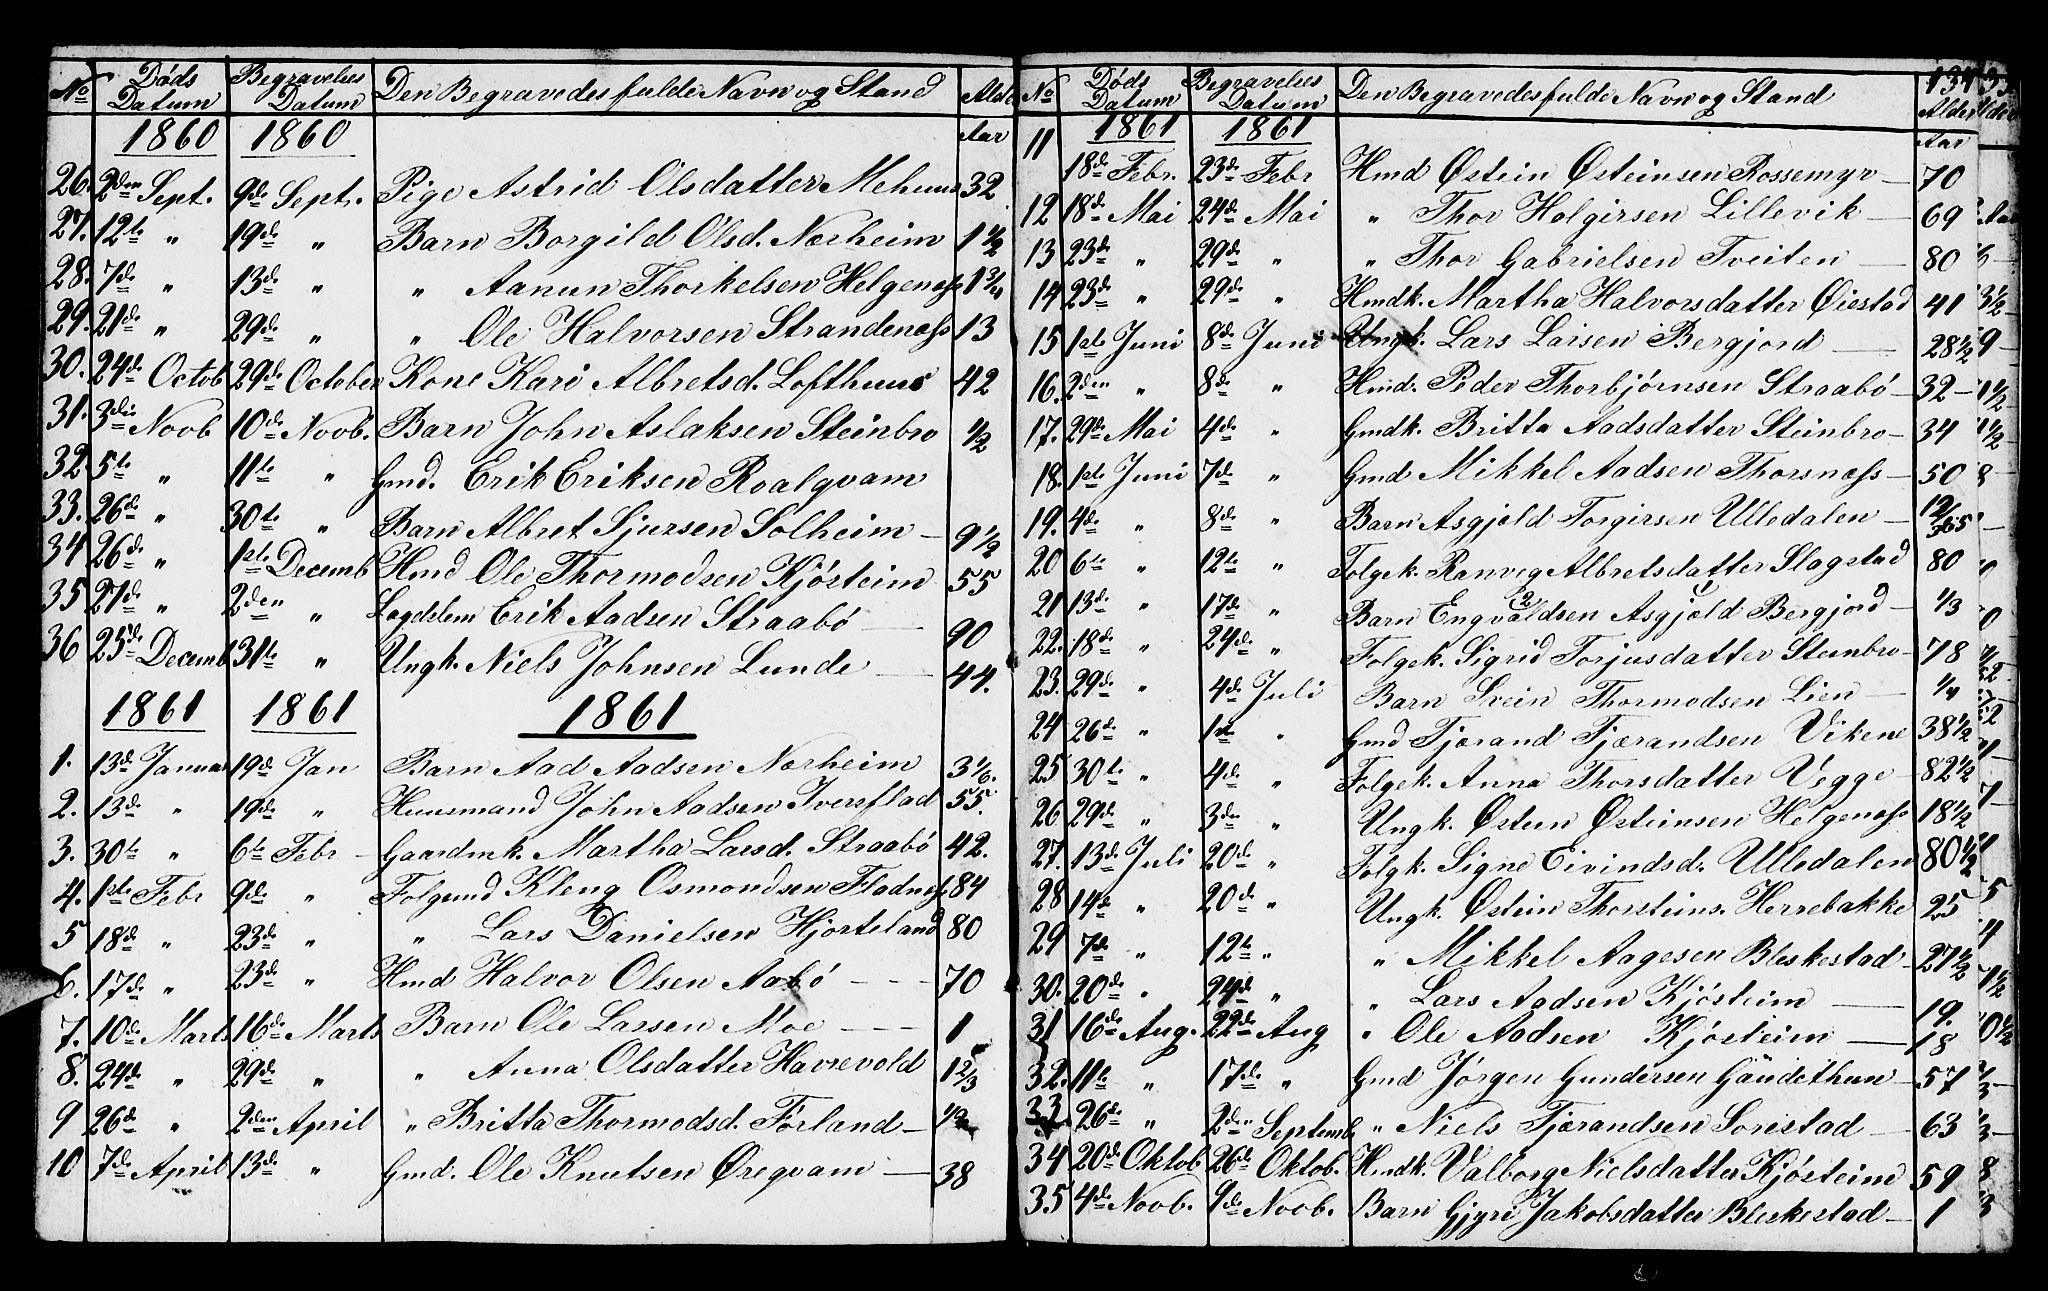 No Døds Datum Begravelses Datum Den Begravedes fulde Navn og Stand Alder
1860 1860 Aar
26. 2den Sept. 9de Sept. Pige Astrid Olsdatter Mehuus 32
27. 12te " 19de " Barn Borgild Olsd. Nærheim 1 1/2
28. 7de " 13de " " Aanun Thorkelsen Helgenæss 1 3/4
29. 21de " 29de " " Ole Halvorsen Strandenæss 13
30. 24de Octob 29de October Kone Kari Albretsd. Lofthuus 42
31. 3die Novb 10de Novb. Barn John Aslaksen Steinbro 1/2
32. 5te " 11te " Gmd. Erik Eriksen Roalqvam
33. 26de " 30te " Barn Albret Sjursen Solheim 9 1/2
34 26de " 1ste Decemb Hmd Ole Thormodsen Kjösteim 55
35 27de " 2den " Lægdslem Erik Aadsen Straabö 90
36 25de Decemb 31te " Ungk. Niels Johnsen Lunde 44.
1861 1861 1861
1. 13de Januar 19de Jan Barn Aad Aadsen Nærheim 3 1/6.
2. 13de " 19de " Huusmand John Aadsen Iversflad 55.
3. 30te " 6te Febr Gaardmk. Martha Larsd. Straabö 42.
4. 1ste Febr 9de " Folgemd Kleng Osmondsen Fladnæss 84
5 18de " 23de " " Lars Danielsen Hjorteland 80
6. 17de " 23de " Hmd Halvor Olsen Aabö 70
7. 10de Marts 16de Marts Barn Ole Larsen Moe 1
8. 24de " 29de " " Anna Olsdatter Havrevold 1 2/3
9 26de " 2den April " Britta Thormodsd. Førland 1/2
10 7de April 13de " Gmd. Ole Knutsen Øreqvam 38
134
No Døds Datum Begravelses Datum Den Begravedes fulde Navn og Stand Alder
1861 1861 Aar
11 18de Febr. 23de Febr Hmd Østein Østeinsen Rossemyr 70
12 18de Mai 24de Mai " Thor Holgirsen Lillevik 69
13 23de " 29de " " Thor Gabrielsen Tveiten 80
14 23de " 29de " Hmdk. Martha Halvorsdatter Øiestad 41
15 1ste Juni 8de Juni Ungk. Lars Larsen Bergjord 28 1/2
16. 2den " 8de " Hmd. Peder Thorbjörnsen Straabö 32
17. 29de Mai 4de " Gmdk. Britta Aadsdatter Steinbro 34
18. 1ste Juni 7de " Gmd Mikkel Aadsen Thorsnæss 50
19. 4de " 8de " Barn Asgjeld Torgirsen Ulledalen 12/365
20 6te " 12te " Folgek. Ranveg Albretsdatter Slagstad 80
21 13de " 17de " Barn Engvaldsen 2 Asgjeld 1 Bergjord 1/3
22. 18de " 24de " Folgek. Sigrid Torjusdatter Steinbro 78
23. 29de " 4de Juli Barn Svein Thormodsen Lien 1/4
24 26de " 1ste " Gmd Tjærand Tjærandsen Vikene 38 1/2
25 30te " 4de " Folgek. Anna Thorsdatter Vegge 82 1/2
26 29de " 3die " Ungk. Østein Østeinsen Helgenæss 18 1/2
27. 13de Juli 20de " Folgk. Signe Eivindsd. Ulledalen 80 1/2
28 14de " 20de " Ungk. Østein Thorsteins. Herrebakke 25
29 7de " 12te " " Mikkel Aagesen Bleskestad 27 1/3
30. 20de " 24de " " Lars Aadsen Kjösteim 19.
31 16de Aug. 22de Aug " Ole Aadsen Kjösteim 18
32. 11te " 17de " Gmd Jørgen Gundersen Gaudethun 57
33 26de " 2den Septemb " Niels Tjærandsen Sørestad 63
34 20de Oktob 26de Oktob. Hmdk. Valborg Nielsdatter Kjösteim 59
35 4de Novb. 9de Novb. Barn Gjyri Jakobsdatter Bleskestad 1